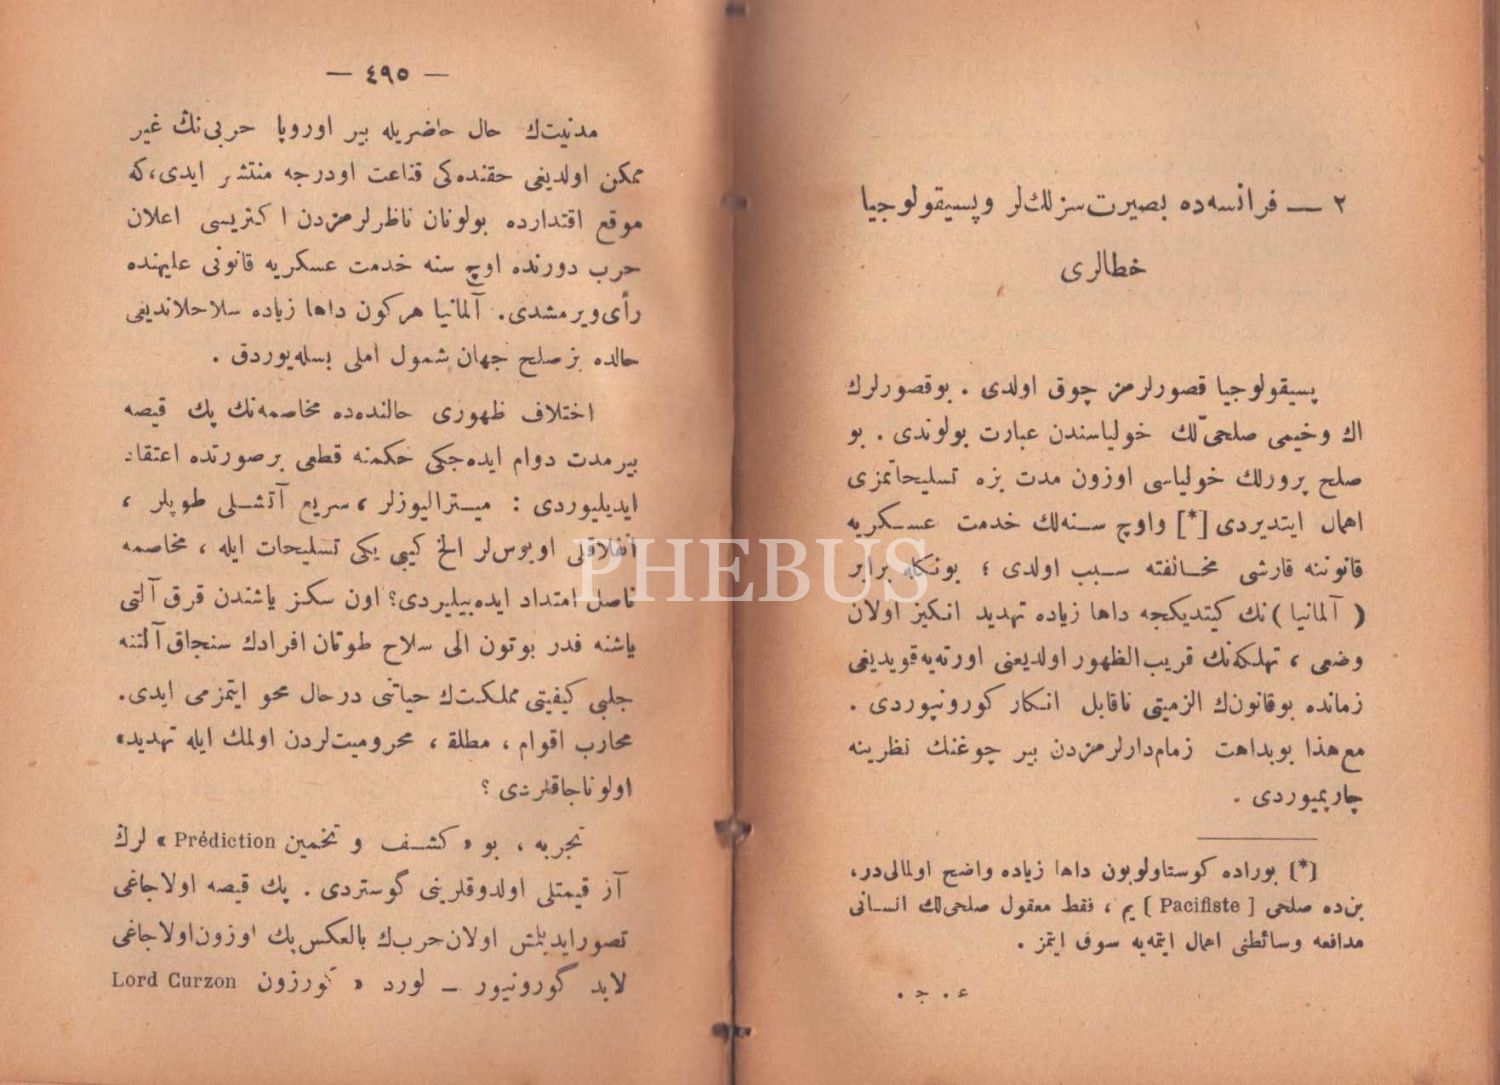 ٢ — فرانسه‌ده بصیرت‌سزلك‌لر وپسیقولوجیا
خطالری
پسیقولوجیا قصورلرمز چوق اولدی . بوقصورلرك
اك وخیمی صلحیّ‌لك خولیاسندن عبارت بولوندی . بو
صلح پرورلك خولیاسی اوزون مدت بزه تسلیحاتمزی
اهمال ایتدیردی [*] واوچ سنه‌لك خدمت عسكریه
قانوننه قارشی مخالفته سبب اولدی ؛ بونكله برابر
( آلمانیا ) نك كیتدیكجه داها زیاده تهدید انكیز اولان
وضعی ، تهلكه‌نك قریب‌الظهور اولدیعنی اورته‌یه‌قویدیغی
زمانده بوقانون‌ك الزمیتی ناقابل انكار كورونیوردی .
مع‌هذا بوبداهت زمام‌دارلرمزدن بیر چوغنك نظرینه
چارپمیوردی .
[*] بوراده كوستاولوبون داها زیاده واضح اولمالی‌در،
بن‌ده صلحی [ Pacifiste ] یم ، فقط معقول صلحی‌لك انسانی
مدافعه وسائطنی اهمال ایتمه‌یه سوق ایتمز .
ع . ج .
— ٤٩٥ —
مدنیت‌ك حال حاضریله بیر اوروپا حربی‌نڭ غیر
ممكن اولدیغی حقنده‌كی قناعت اودرجه منتشر ایدی،كه
موقع اقتدارده بولونان ناظرلرمزدن اكثریسی اعلان
حرب دورنده اوچ سنه خدمت عسكریه قانونی علیهنده
رأی‌ویرمشدی. آلمانیا هركون داها زیاده سلاحلاندیغی
حالده بزصلح جهان شمول املی بسله‌یوردق .
اختلاف ظهوری حالنده‌ده مخاصمه‌نك پك قیصه
بیرمدت دوام ایده‌جكی حكمنه قطعی برصورتده اعتقاد
ایدیلیوردی : میترالیوزلر ، سریع آتشلی طوپلر ،
انفلاقلی اوبوس‌لر الخ كیبی یكی تسلیحات ایله ، مخاصمه
ناصل امتداد ایده‌بیلیردی؟ اون سكز یاشندن قرق آلتی
یاشنه قدر بوتون الی سلاح طوتان افرادك سنجاق آلتنه
جلبی كیفیتی مملكت‌ك حیاتنی درحال محو ایتمزمی ایدی.
محارب اقوام ، مطلقا ، محرومیت‌لردن اولمك ایله تهدید
اولوناجاقلردی ؟
تجربه ، بو « كشف و تخمین Prédiction » لرڭ
آز قیمتلی اولدوقلرینی گوستردی . پك قیصه اولاجاغی
تصورایدیلمش اولان‌حرب‌ك بالعكس‌پك اوزون‌اولاجاغی
لابد گورونیور — لورد « كورزون Lord Curzon
PHEBUS